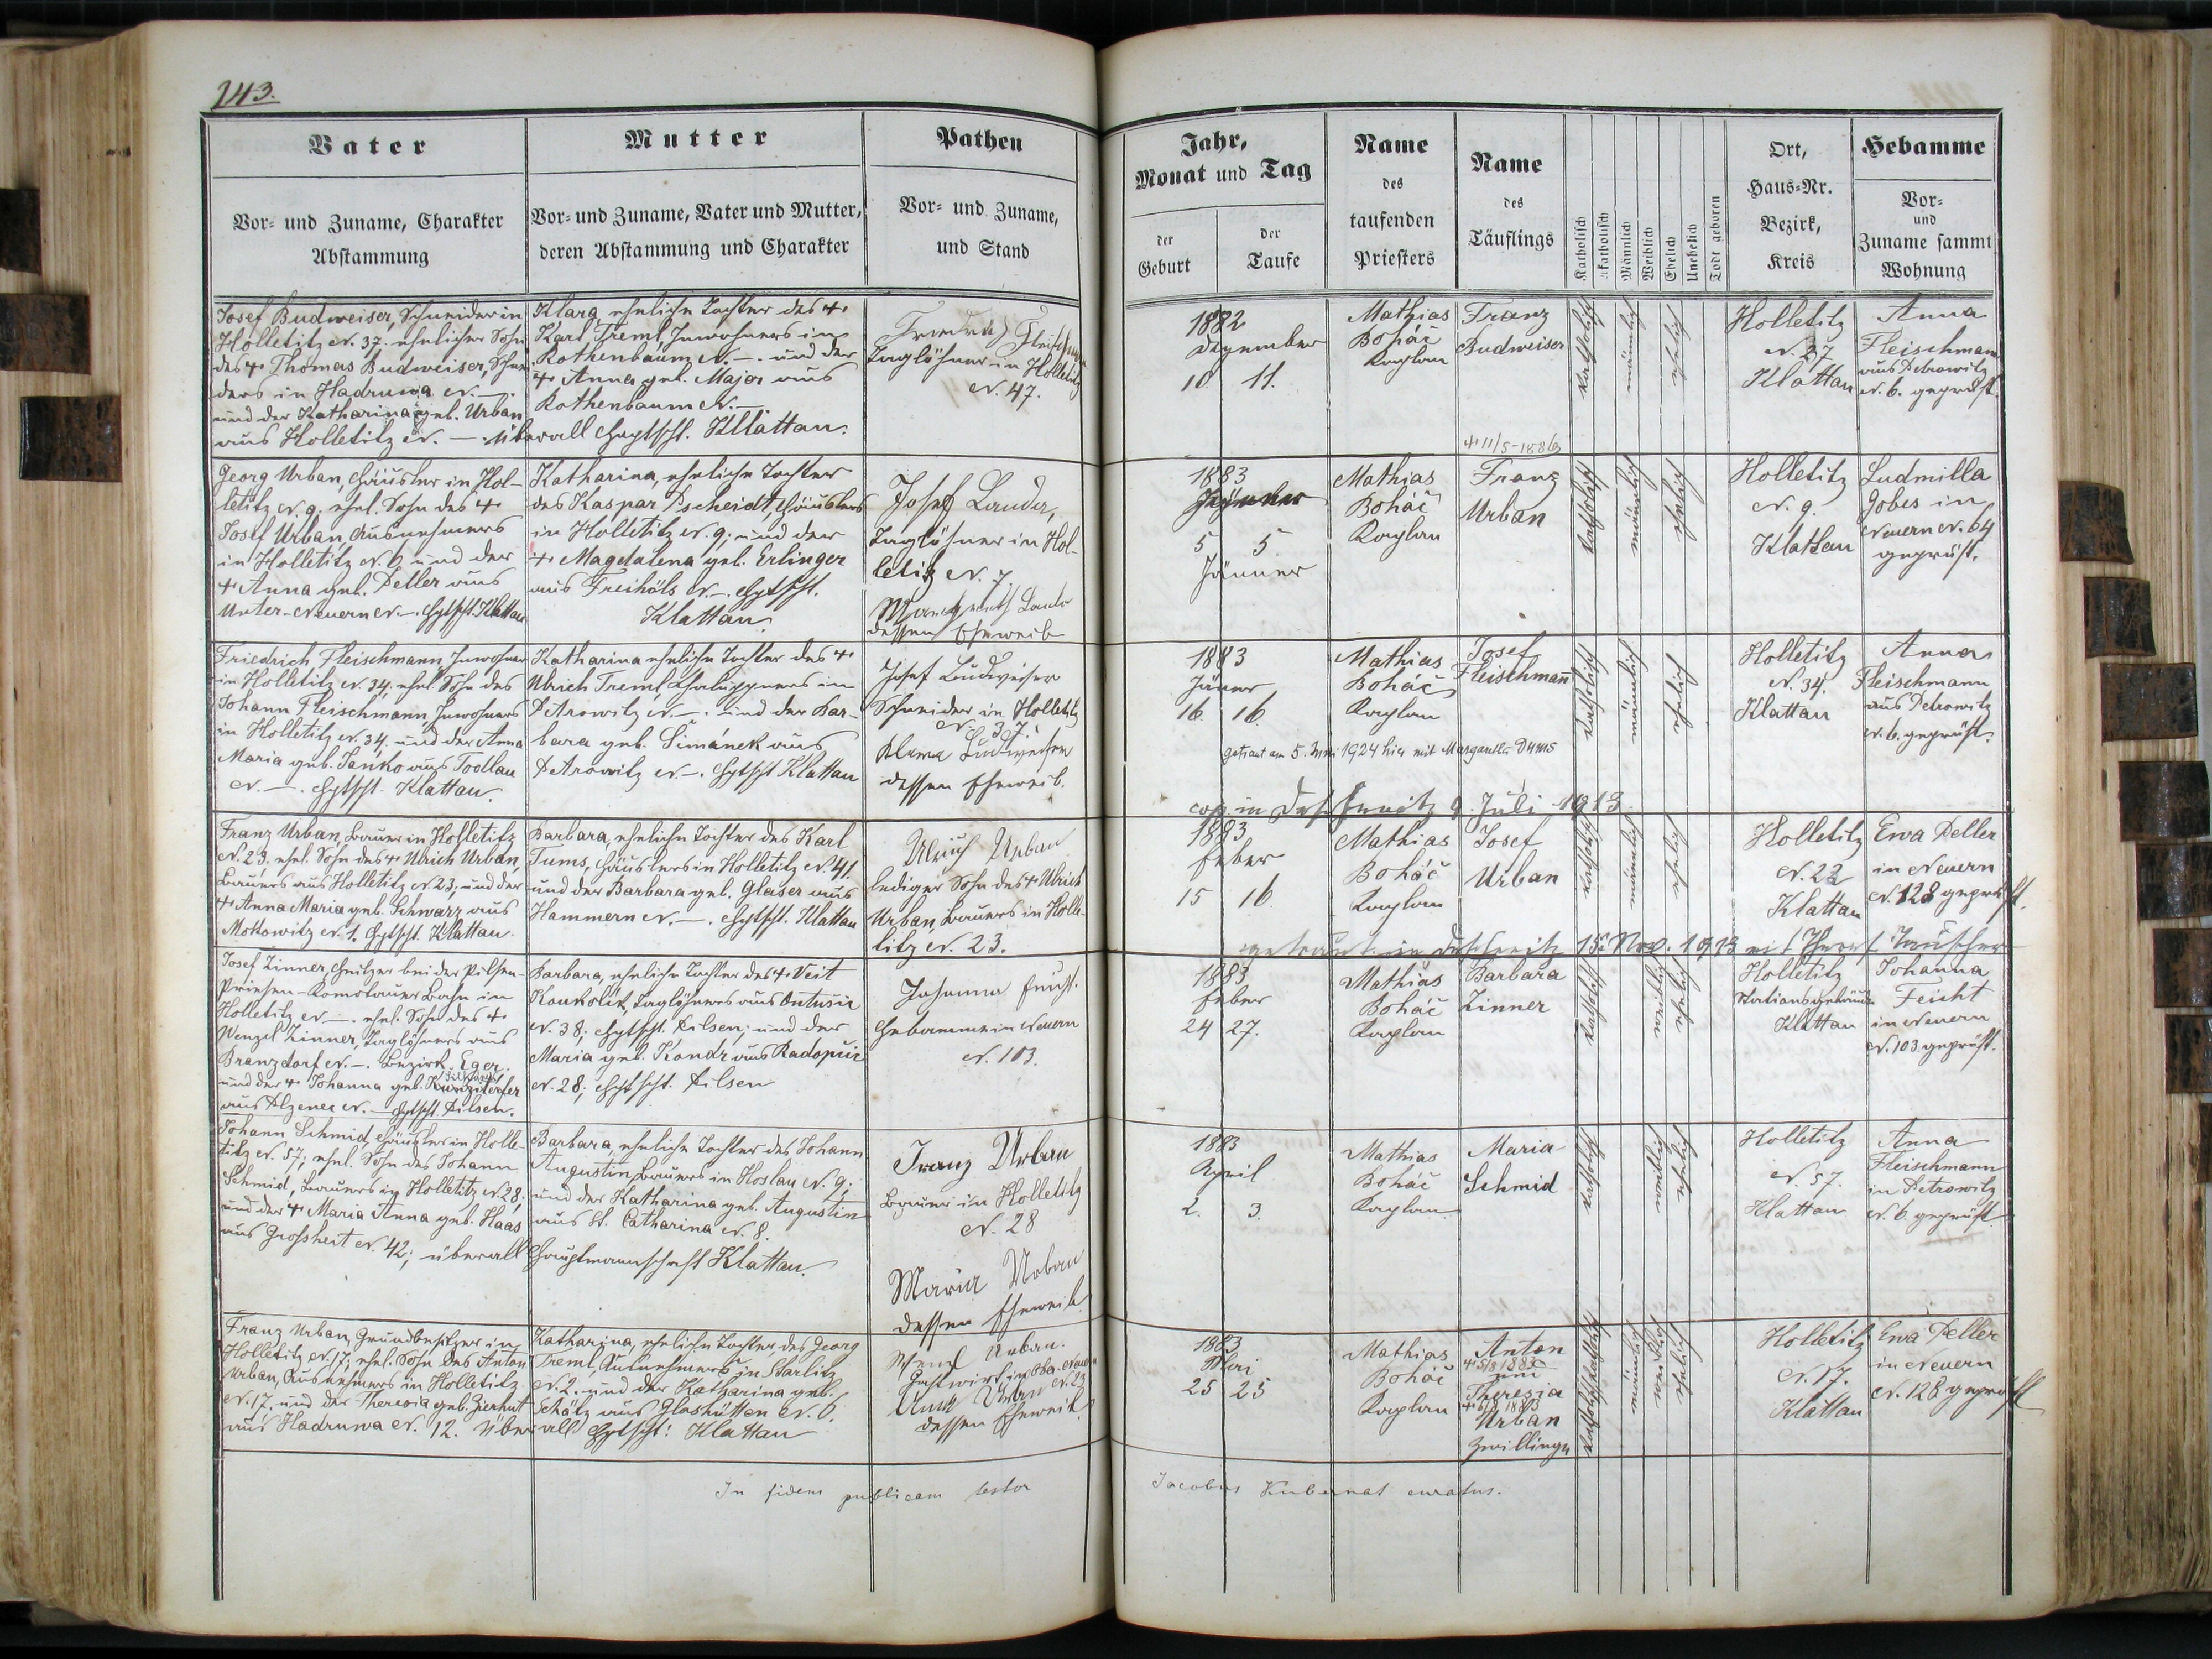 143.
Vater
Vor- und Zuname, Charakter
Abstammung
Mutter
Vor- und Zuname, Vater und Mutter,
deren Abstammung und Charakter
Pathen
Vor- und Zuname,
und Stand
Josef Budweiser, Schneider in
Holletitz N. 37. ehelicher Sohn
des + Thomas Budweiser, Schnei-
ders in Hadruwa N. —.
und der Katharina geb. Urban
aus Holletitz N. — . überall Hptschft. Klattau.
Klara, eheliche Tochter des +
Karl Treml Inwohners in
Rothenbaum N. — . und der
+ Anna geb. Major aus
Rothenbaum N. —
Friedrich Fleischmann
Taglöhner in Holletitz
N. 47.
Georg Urban, Häusler in Hol-
letitz N. 9. ehel. Sohn des +
Josef Urban, Ausnehmers
in Holletitz N. 6 und der
+ Anna geb. Peller aus
Unter-Neuern N. — . Hptschft. Klattau
Katharina, eheliche Tochter
des Kaspar Pscheidt, Häuslers
in Holletitz N. 9; und der
+ Magdalena geb. Erlinger
aus Freihöls N. — . Hptschft.
Klattau.
Josef Lauda,
Taglöhner in Hol-
letitz N. 7.
Margareth Lauda
dessen Eheweib
Friedrich Fleischmann Inwohner
in Holletitz N. 34. ehel. Sohn des
Johann Fleischmann Inwohners
in Holletitz N. 34. und der Anna
Maria geb. Janko aus Todlau
N. — . Hptschft. Klattau.
Katharina eheliche Tochter des +
Ulrich Treml Chaluppners in
Petrowitz N. — . und der Bar-
bara geb. Šimánek aus
Petrowitz N. — . Hptschft Klattau
Josef Budweiser
Schneider in Holletitz
N. 37.
Klara Budweiser
dessen Eheweib.
Franz Urban, Bauer in Holletitz
N. 23. ehel. Sohn des + Ulrich Urban,
Bauers aus Holletitz N. 23; und der
+ Anna Maria geb. Schwarz aus
Mottowitz N. 1. Hptschft. Klattau.
Barbara, eheliche Tochter des Karl
Tums, Häuslers in Holletitz N. 41.
und der Barbara geb. Glaser aus
Hammern N. — . Hptschft. Klattau
Ulrich Urban
lediger Sohn des + Ulrich
Urban, Bauers in Holle-
titz N. 23.
Josef Zinner, Heitzer bei der Pilsen-
Priesen-Komotauer Bahn in
Holletitz N. — . ehel. Sohn des +
Wenzel Zinner, Taglöhners aus
Branzdorf N. — . Bezirk Eger.
und der + Johanna geb.
aus Plzenec N. — Hptschft. Pilsen.
Barbara, eheliche Tochter des + Veit
Koukolik, Taglöhners aus
N. 38; Hptschft. Pilsen; und der
Maria geb. Kondr aus Radopuic
N. 28; Hptschft. Pilsen
Johanna Feicht.
Hebamme in Neuern
N. 103.
Johann Schmid, Häusler in Holle-
titz N. 57; ehel. Sohn des Johann
Schmid, Bauers in Holletitz N. 28;
und der + Maria Anna geb. Haas
aus Grossheit N. 42; überall Hauptmannschaft Klattau.
Barbara, eheliche Tochter des Johann
Augustin, Bauers in Hoslau N. 9;
und der Katharina geb. Augustin
aus St. Catharina N. 8.
Franz Urban
Bauer in Holletitz
N. 28
Maria Urban
dessen Eheweib.
Franz Urban, Grundbesitzer in
Holletitz N. 17; ehel. Sohn des Anton
Urban, Ausnehmers in Holletitz
N. 17. und der Theresia geb. Zierhut
aus Hadruwa N. 12. Überall Hptschft: Klattau
Katharina, eheliche Tochter des Georg
Treml, Ausnehmers in Starlitz
N. 2. und der Katharina geb.
Schätz aus Glashütten N. 6.
Urban.
Gastwirt in Ober-Neuern
Urban N. 23
dessen Eheweib.
In fidem publicam testor
Jahr,
Monat und Tag
der
Geburt
der
Taufe
Name
des
taufenden
Priesters
Name
des
Täuflings
Katholisch
Akatholisch
Männlich
Weiblich
Ehelich
Unehelich
Todt geboren
Ort,
Haus-Nr.
Bezirk,
Kreis
Hebamme
Vor-
und
Zuname sammt
Wohnung
1882
Dezember
10 11.
Mathias
Boháč
Kaplan
Franz
Budweiser
katholisch
männlich
ehelich
Holletitz
N. 37
Klattau
Anna
Fleischmann
aus Petrowitz
N. 6. geprüft.
1883
5 5
Jänner
Mathias
Boháč
Kaplan
+ 11/5-1886
Franz
Urban
katholisch
männlich
ehelich
Holletitz
N. 9.
Klattau
Ludmilla
Gobes in
Neuern N. 64
geprüft.
1883
Jänner
16 16
Mathias
Boháč
Kaplan
Josef
Fleischmann
katholisch
männlich
ehelich
Holletitz
N. 34.
Klattau
Anna
Fleischmann
aus Petrowitz
N. 6. geprüft.
getraut am 5. Juni 1924 hier mit
cop. in 9. Juli 1913.
1883
Feber
15 16.
Mathias
Boháč
Kaplan
Josef
Urban
katholisch
männlich
ehelich
Holletitz
N. 23
Klattau
Ewa Peller
in Neuern
N. 128 geprüft.
getraut in 15. Nov. 1913
1883
Feber
24 27.
Mathias
Boháč
Kaplan
Barbara
Zinner
katholisch
weiblich
ehelich
Holletitz
Stationsgebäude
Klattau
Johanna
Feicht
in Neuern
N. 103. geprüft.
1883
April
2. 3.
Mathias
Boháč
Kaplan
Maria
Schmid
katholisch
weiblich
ehelich
Holletitz
N. 57.
Klattau
Anna
Fleischmann
in Petrowitz
N. 6. geprüft
1883
Mai
25 25
Mathias
Boháč
Kaplan
Anton
+ 5/8 1883
und
Theresia
Urban
Zwillinge
katholisch katholisch
männlich
weiblich
ehelich
Holletitz
N. 17.
Klattau
Ewa Peller
in Neuern
N. 128 geprüft
Jacobus Kubernat curatus.